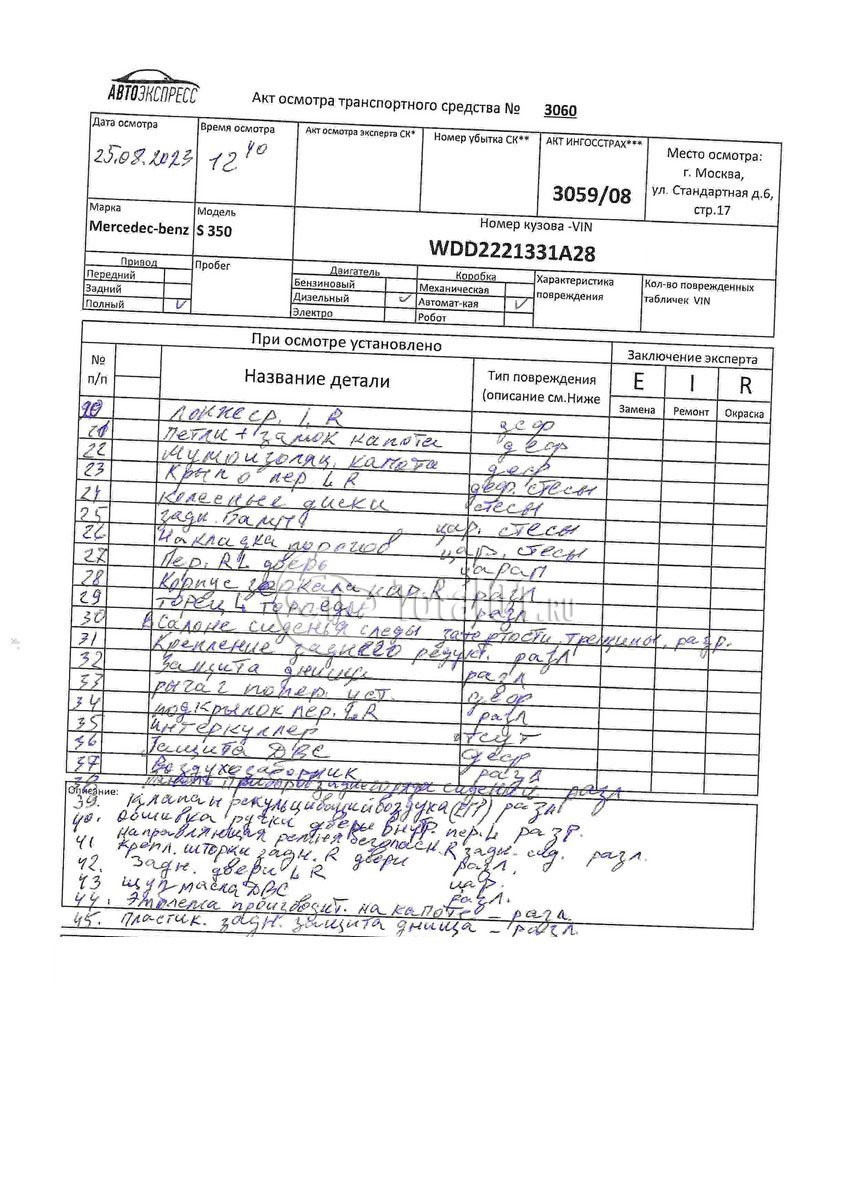 АВТОЭКСПРЕСС
Акт осмотра транспортного средства № 3060
Дата осмотра
25.08.2023
Время осмотра
12 40
Акт осмотра эксперта СК*
Номер убытка СК**
АКТ ИНГОССТРАХ***
3059/08
Место осмотра:
г. Москва,
ул. Стандартная д.6,
стр.17
Марка
Mercedec-benz
Модель
S 350
Номер кузова -VIN
WDD2221331A28
Привод
Передний
Задний
Полный
Пробег
Двигатель
Бензиновый
Дизельный
Электро
Коробка
Механическая
Автомат-кая
Робот
Характеристика
повреждения
Кол-во поврежденных
табличек VIN
При осмотре установлено
Заключение эксперта
№
п/п
Название детали
Тип повреждения
(описание см.Ниже
E I R
Замена Ремонт Окраска
20 L R деф
21 Петли + замок капота деф
22 Шумоизоляц. капота деф
23 Крыло пер. L R деф. стесы
24 Колесные диски стесы
25 задн. Бампер цар. стесы
26 Накладка порогов цар. стесы
27 Пер. RL дверь царап
28 Корпус зеркала нар. R. разл
29 Торец L торпеды разл
30 В салоне сиденья следы затертости, трещины, разр.
31 Крепление заднего редукт. разл
32 Защита днища разл
33 рычаг попер. ист. деф
34 подкрылок пер. L R разл
35 Интеркуллер отсут
36 Защита ДВС деф
37 Воздухозаборник разл
Описание:
38. сидений. разл
39. Клапан воздуха (ЕГР) разл
40. Обшивка ручки двери внутр. пер. L разр.
направляющая ремня безопасн. R задн. сид. разл.
41 крепл. шторки задн. R двери разл.
42. Задн. двери L R цар.
43 щуп масла ДВС разл.
44. Эмблема производит. на капоте – разл.
45. Пластик. задн. защита днища – разл.
TOTAL .RU